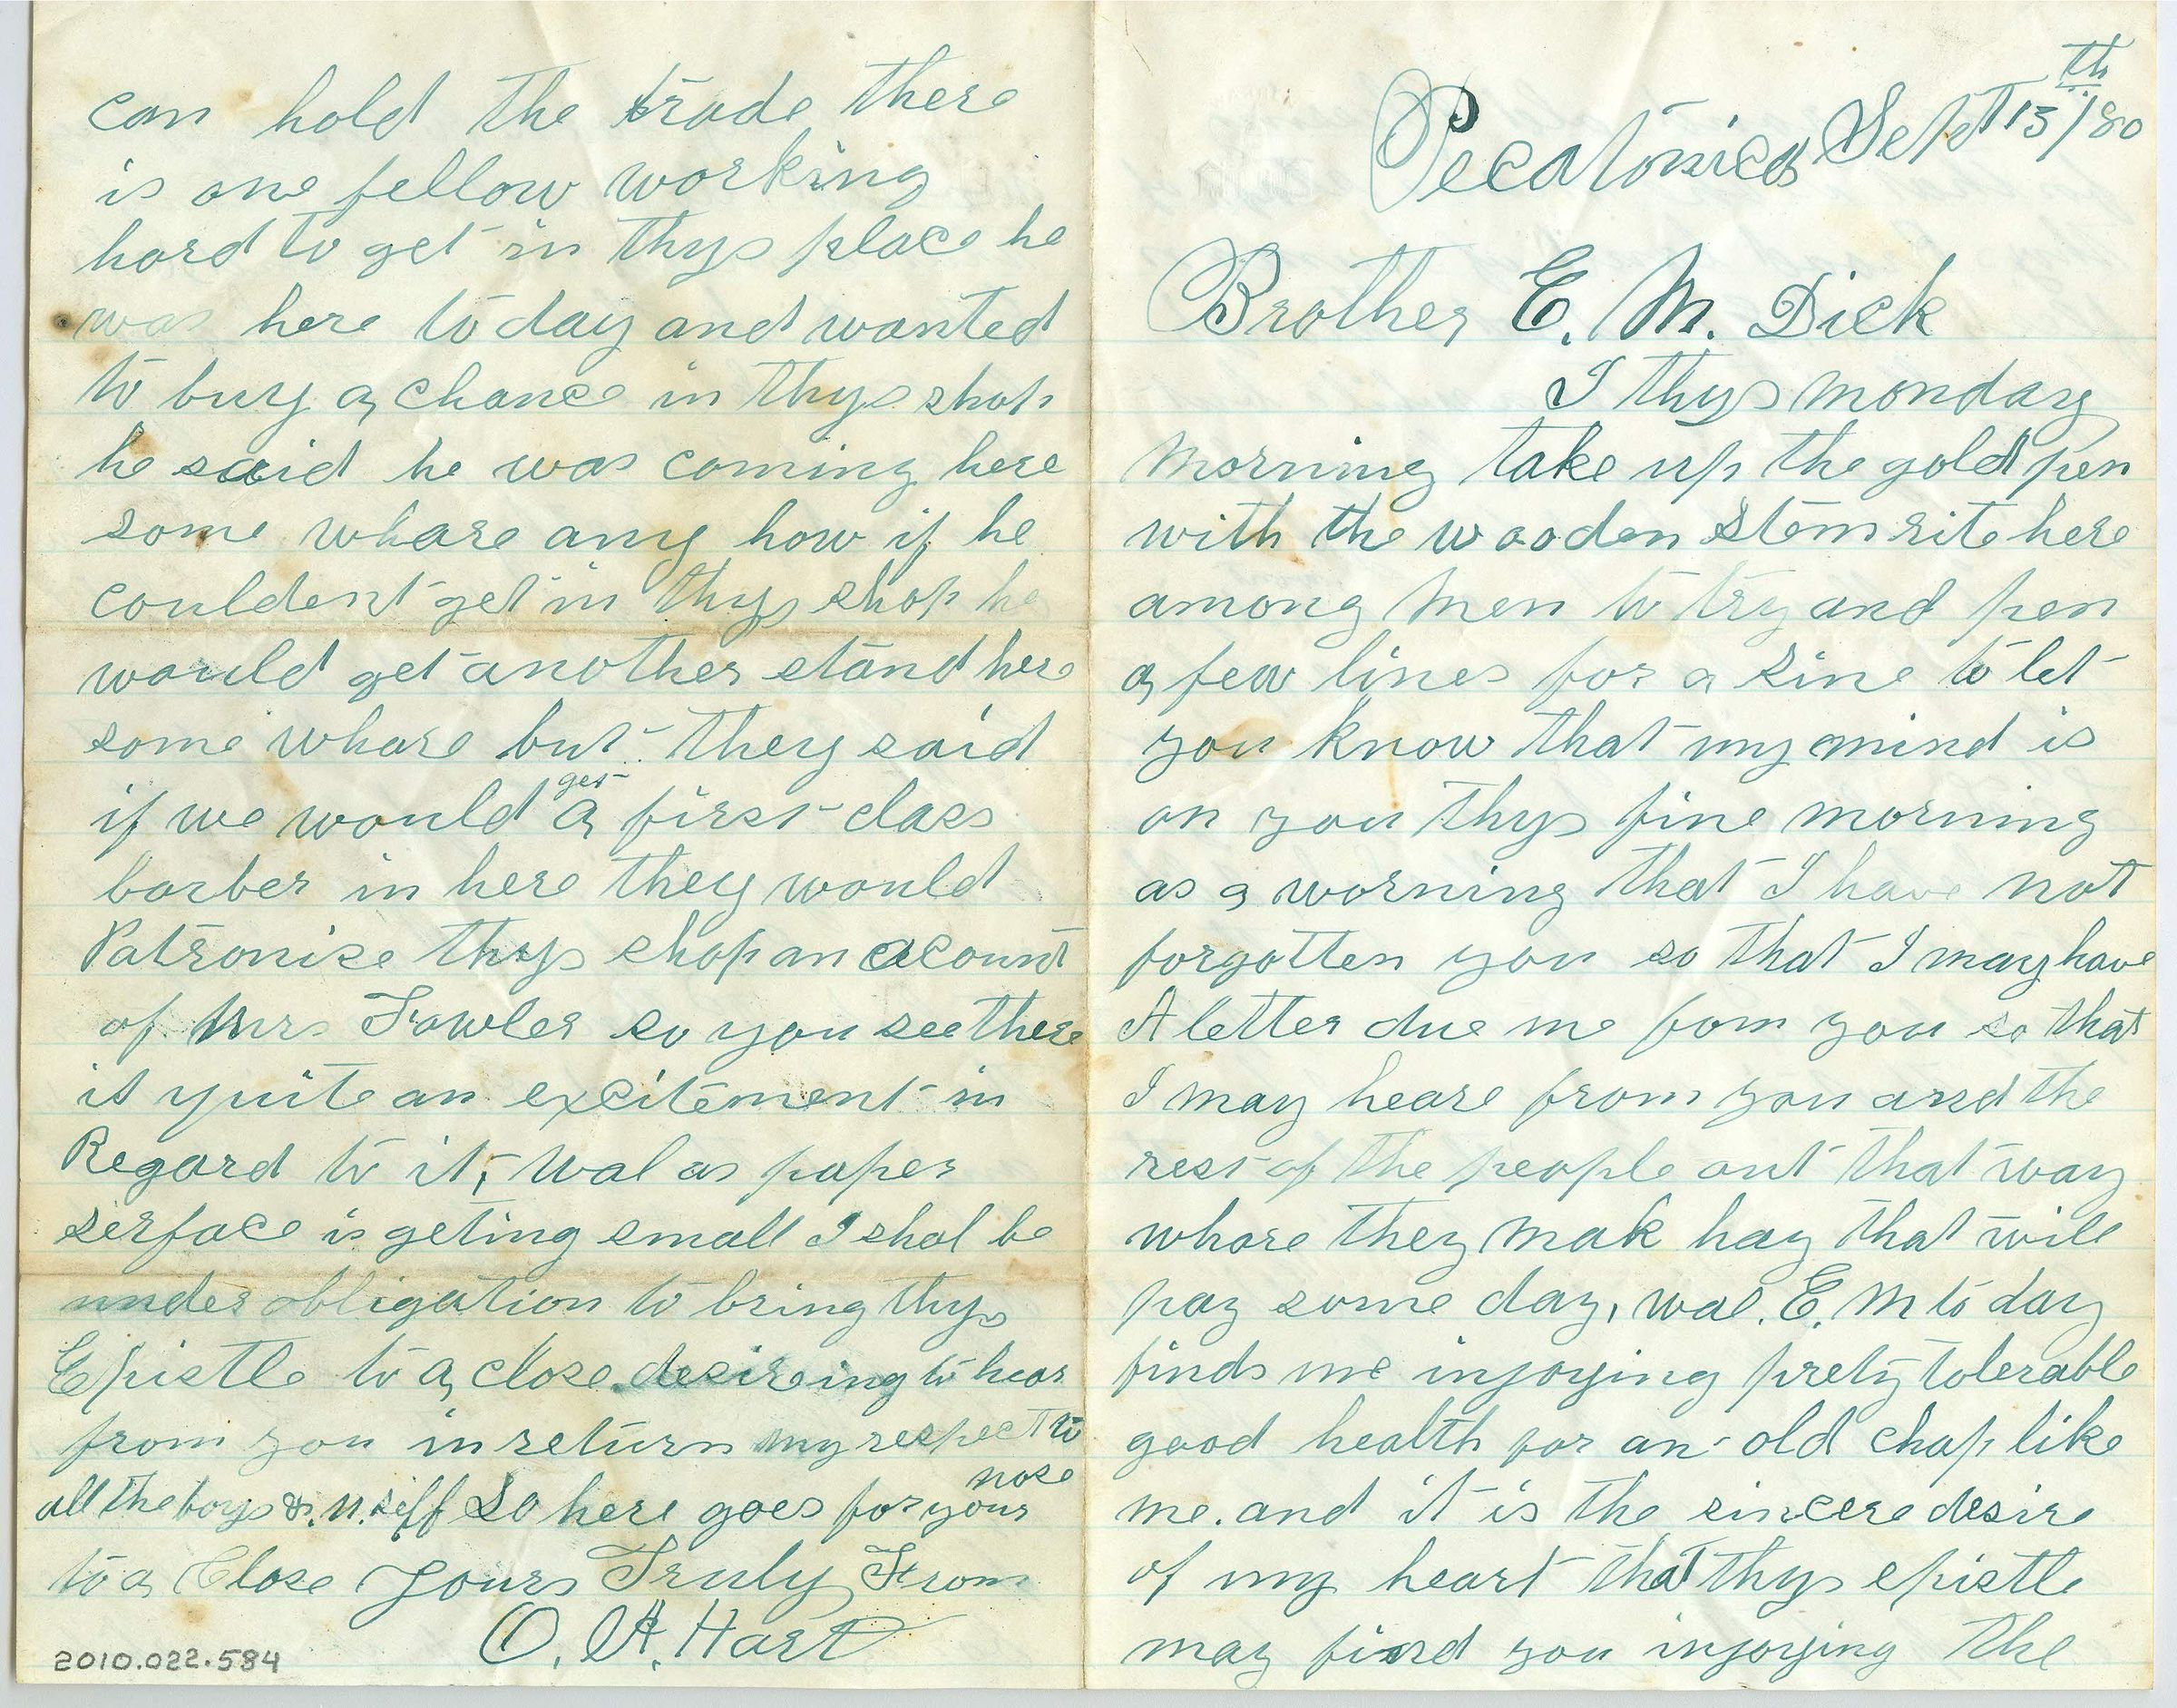 Pecatonica Sept 13th/80
Brother E. M. Dick
I thys monday
morning take up the gold pen
with the wooden stem rite here
among men to try and pen
a few lines for a sine to let
you know that my mind is
on you thys fine morning
as a worning that I have not
forgotten you so that I may have
A letter due me fom you so that
I may heare from you and the
rest of the people out that way
whare they mak hay that will
pay some day, wal. E. M to day
finds me injoying prety tolerable
good health for an old chap like
me. and it is the sincere desire
of my heart that thys epistle
may find you injoying the
can hold the trade there
is one fellow working
hard to get in thys place he
was here to day and wanted
to buy a chance in thys shop
he said he was coming here
some whare any how if he
couldent get in thys shop he
would get another stand here
some whare but they said
if we would get a first class
barber in here they would
Patronise thys shop an acount
of Mrs Fowler so you see there
is quite an excitement in
Regard to it, wal as paper
serface is geting small I shal be
under obligation to bring thys
Epistle to a close. desireing to hear
from you in return my respect to
all the boys &. N. Neff So here goes for your nose
to a Close Yours Truly From
O. H. Hart
2010.022.584